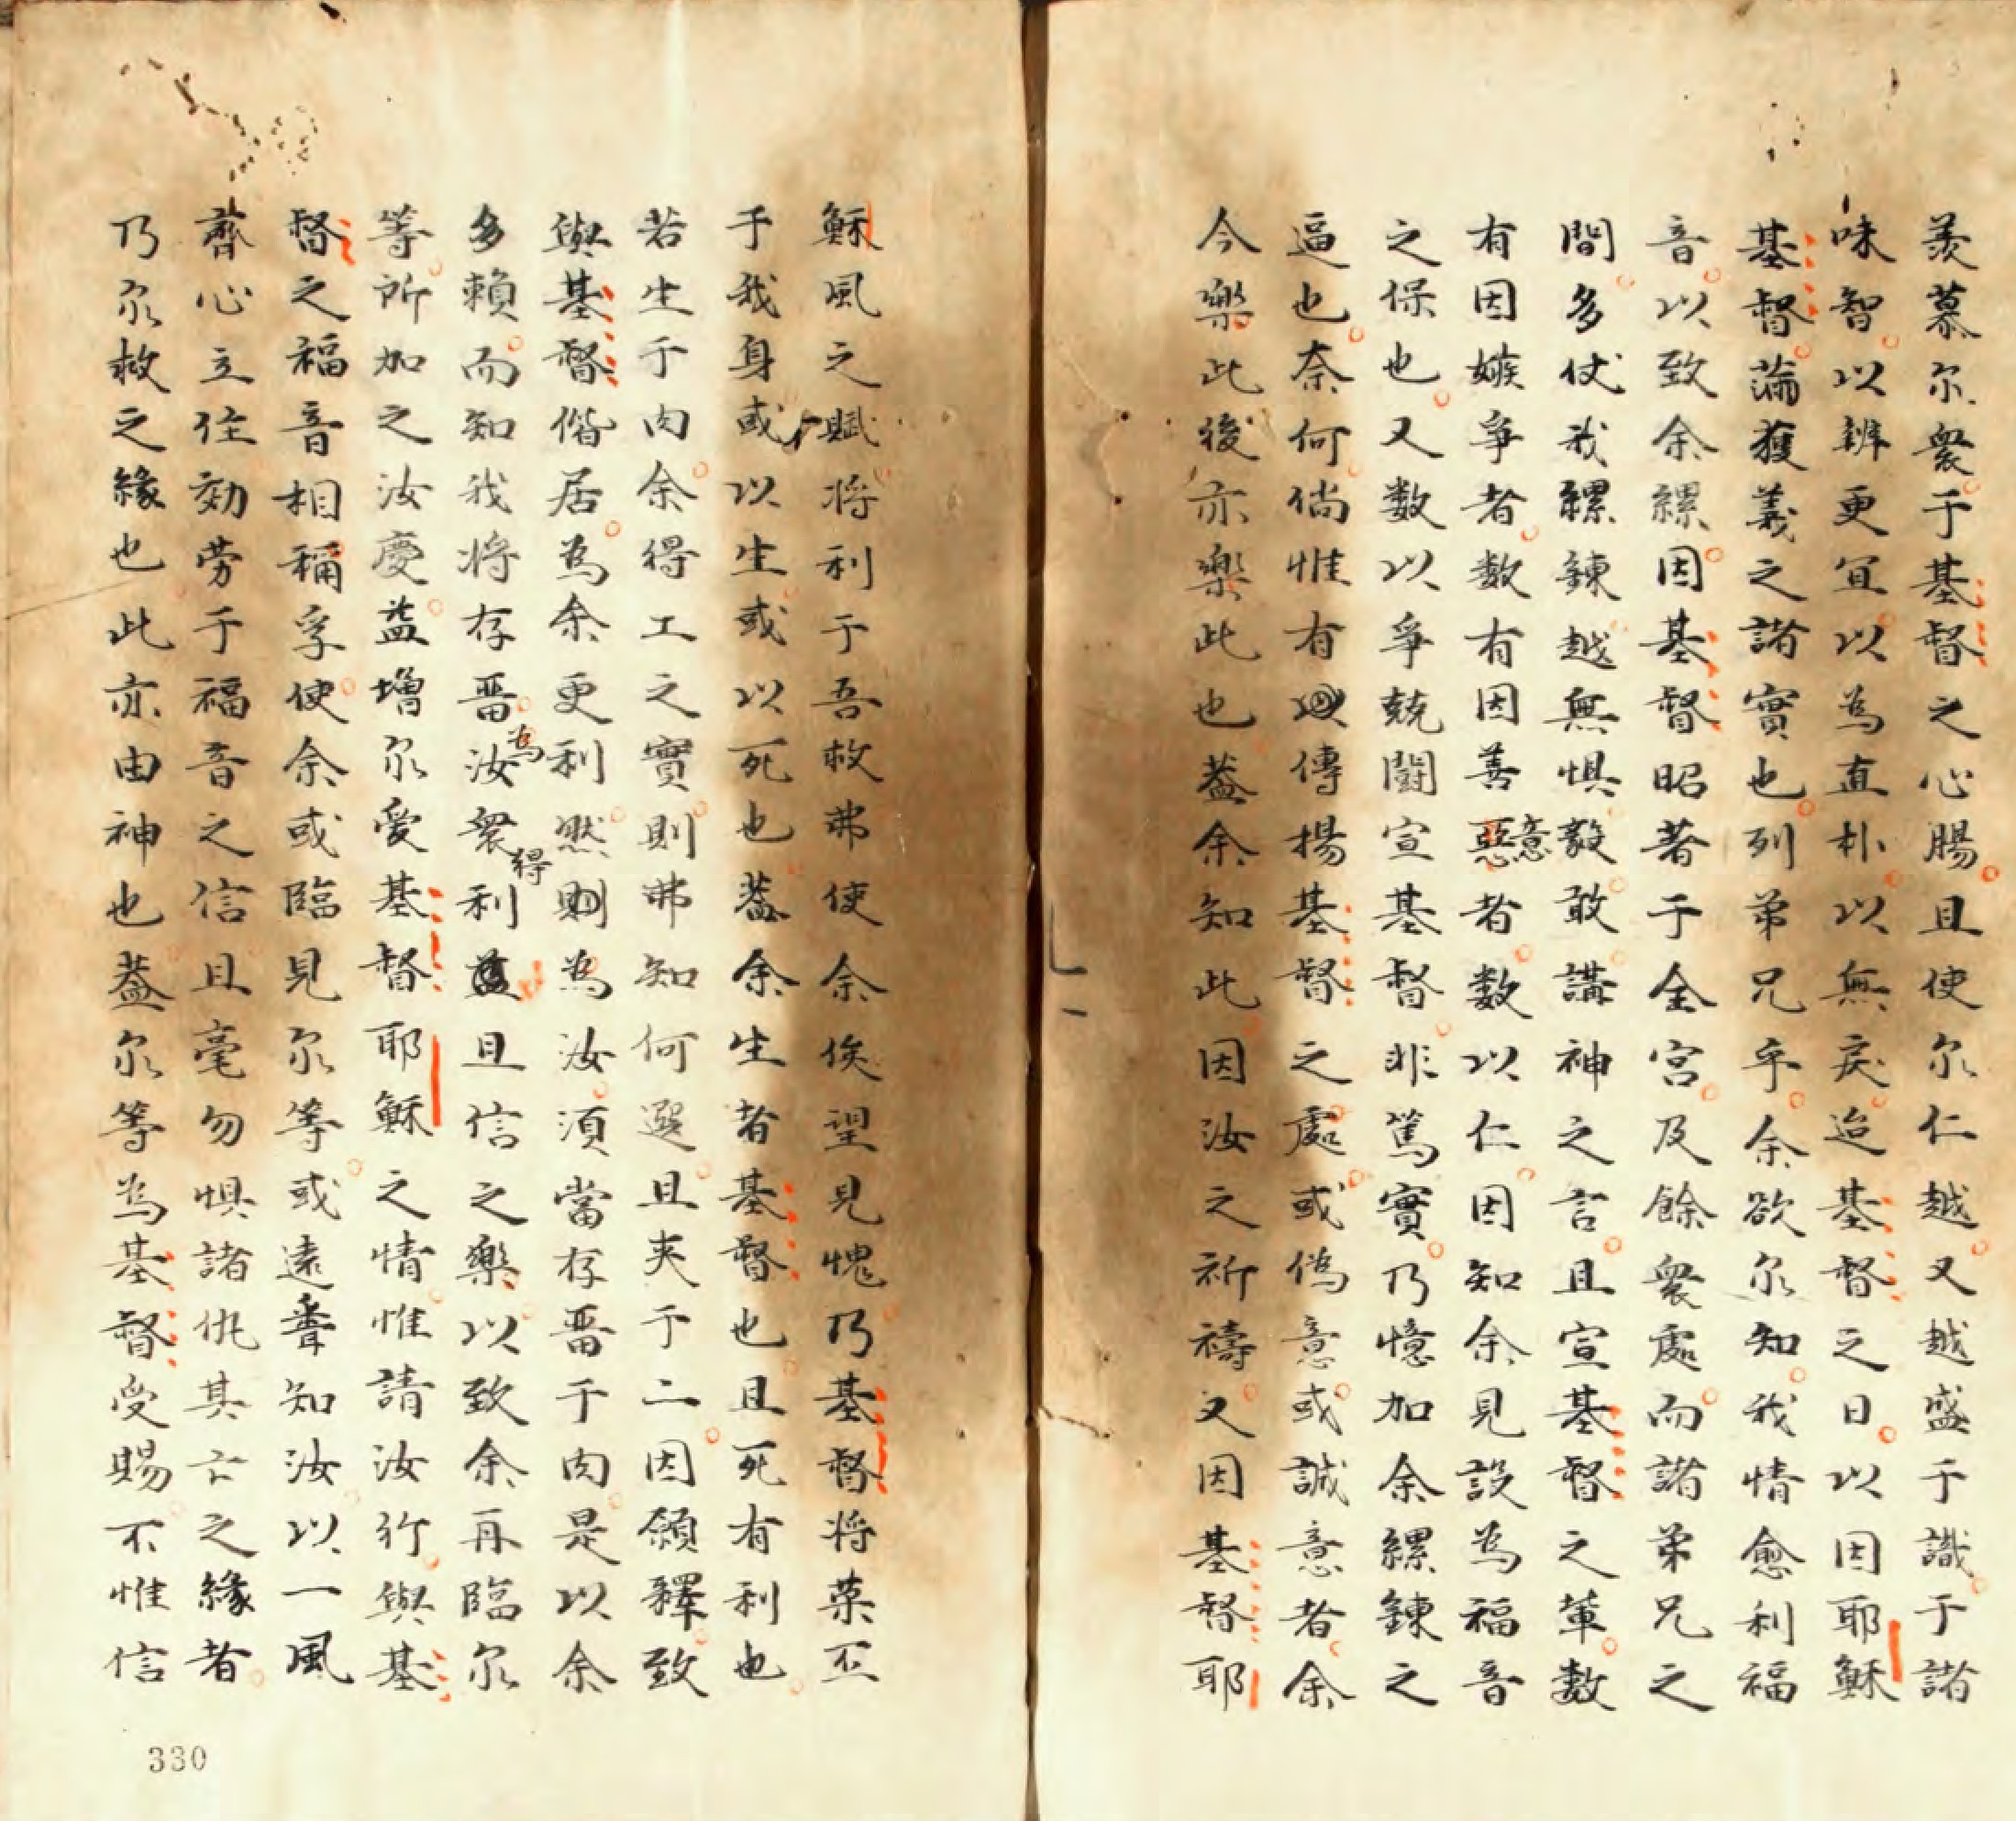 羨慕尔衆于基督之心腸且使尔仁越又越盛于識于諸
味智以辨更宜以為直朴以無戾迨基督之日以因耶穌
基督滿獲義之諸實也列弟兄乎余欲尔知我情愈利福
音以致余縲因基督昭著于全宮及餘衆處而諸弟兄之
間多仗我縲鍊越無惧敢講神之言且宣基督之輩数
有因嫉爭者数有因善意者数以仁因知余見設為福音
之保也又数以爭競鬪宣基督非篤實乃憶加余縲鍊之
逼也奈何倘惟有傳揚基督之處或偽意或誠意者余
今樂此後亦樂此也蓋余知此因汝之祈禱又因基督耶
穌風之賦將利于吾救弗使余俟望見愧乃基督将荣丕
于我身或以生或以死也蓋余生者基督也且死有利也
若生于肉余得工之實則弗知何選且夾于二因願釋致
與基督偕居為余更利然則為汝湏當存畱于肉是以余
多賴而知我将存畱為汝衆得利益且信之樂以致余再臨尔
等所加之汝慶益增尔愛基督耶穌之情惟請汝行與基
督之福音相稱孚使余或臨見尔等或遠聞知汝以一風
齊心立住効劳于福音之信且毫勿惧諸仇其亡之緣者
乃尔救之緣也此亦由神也蓋尔等為基督受賜不惟信
330